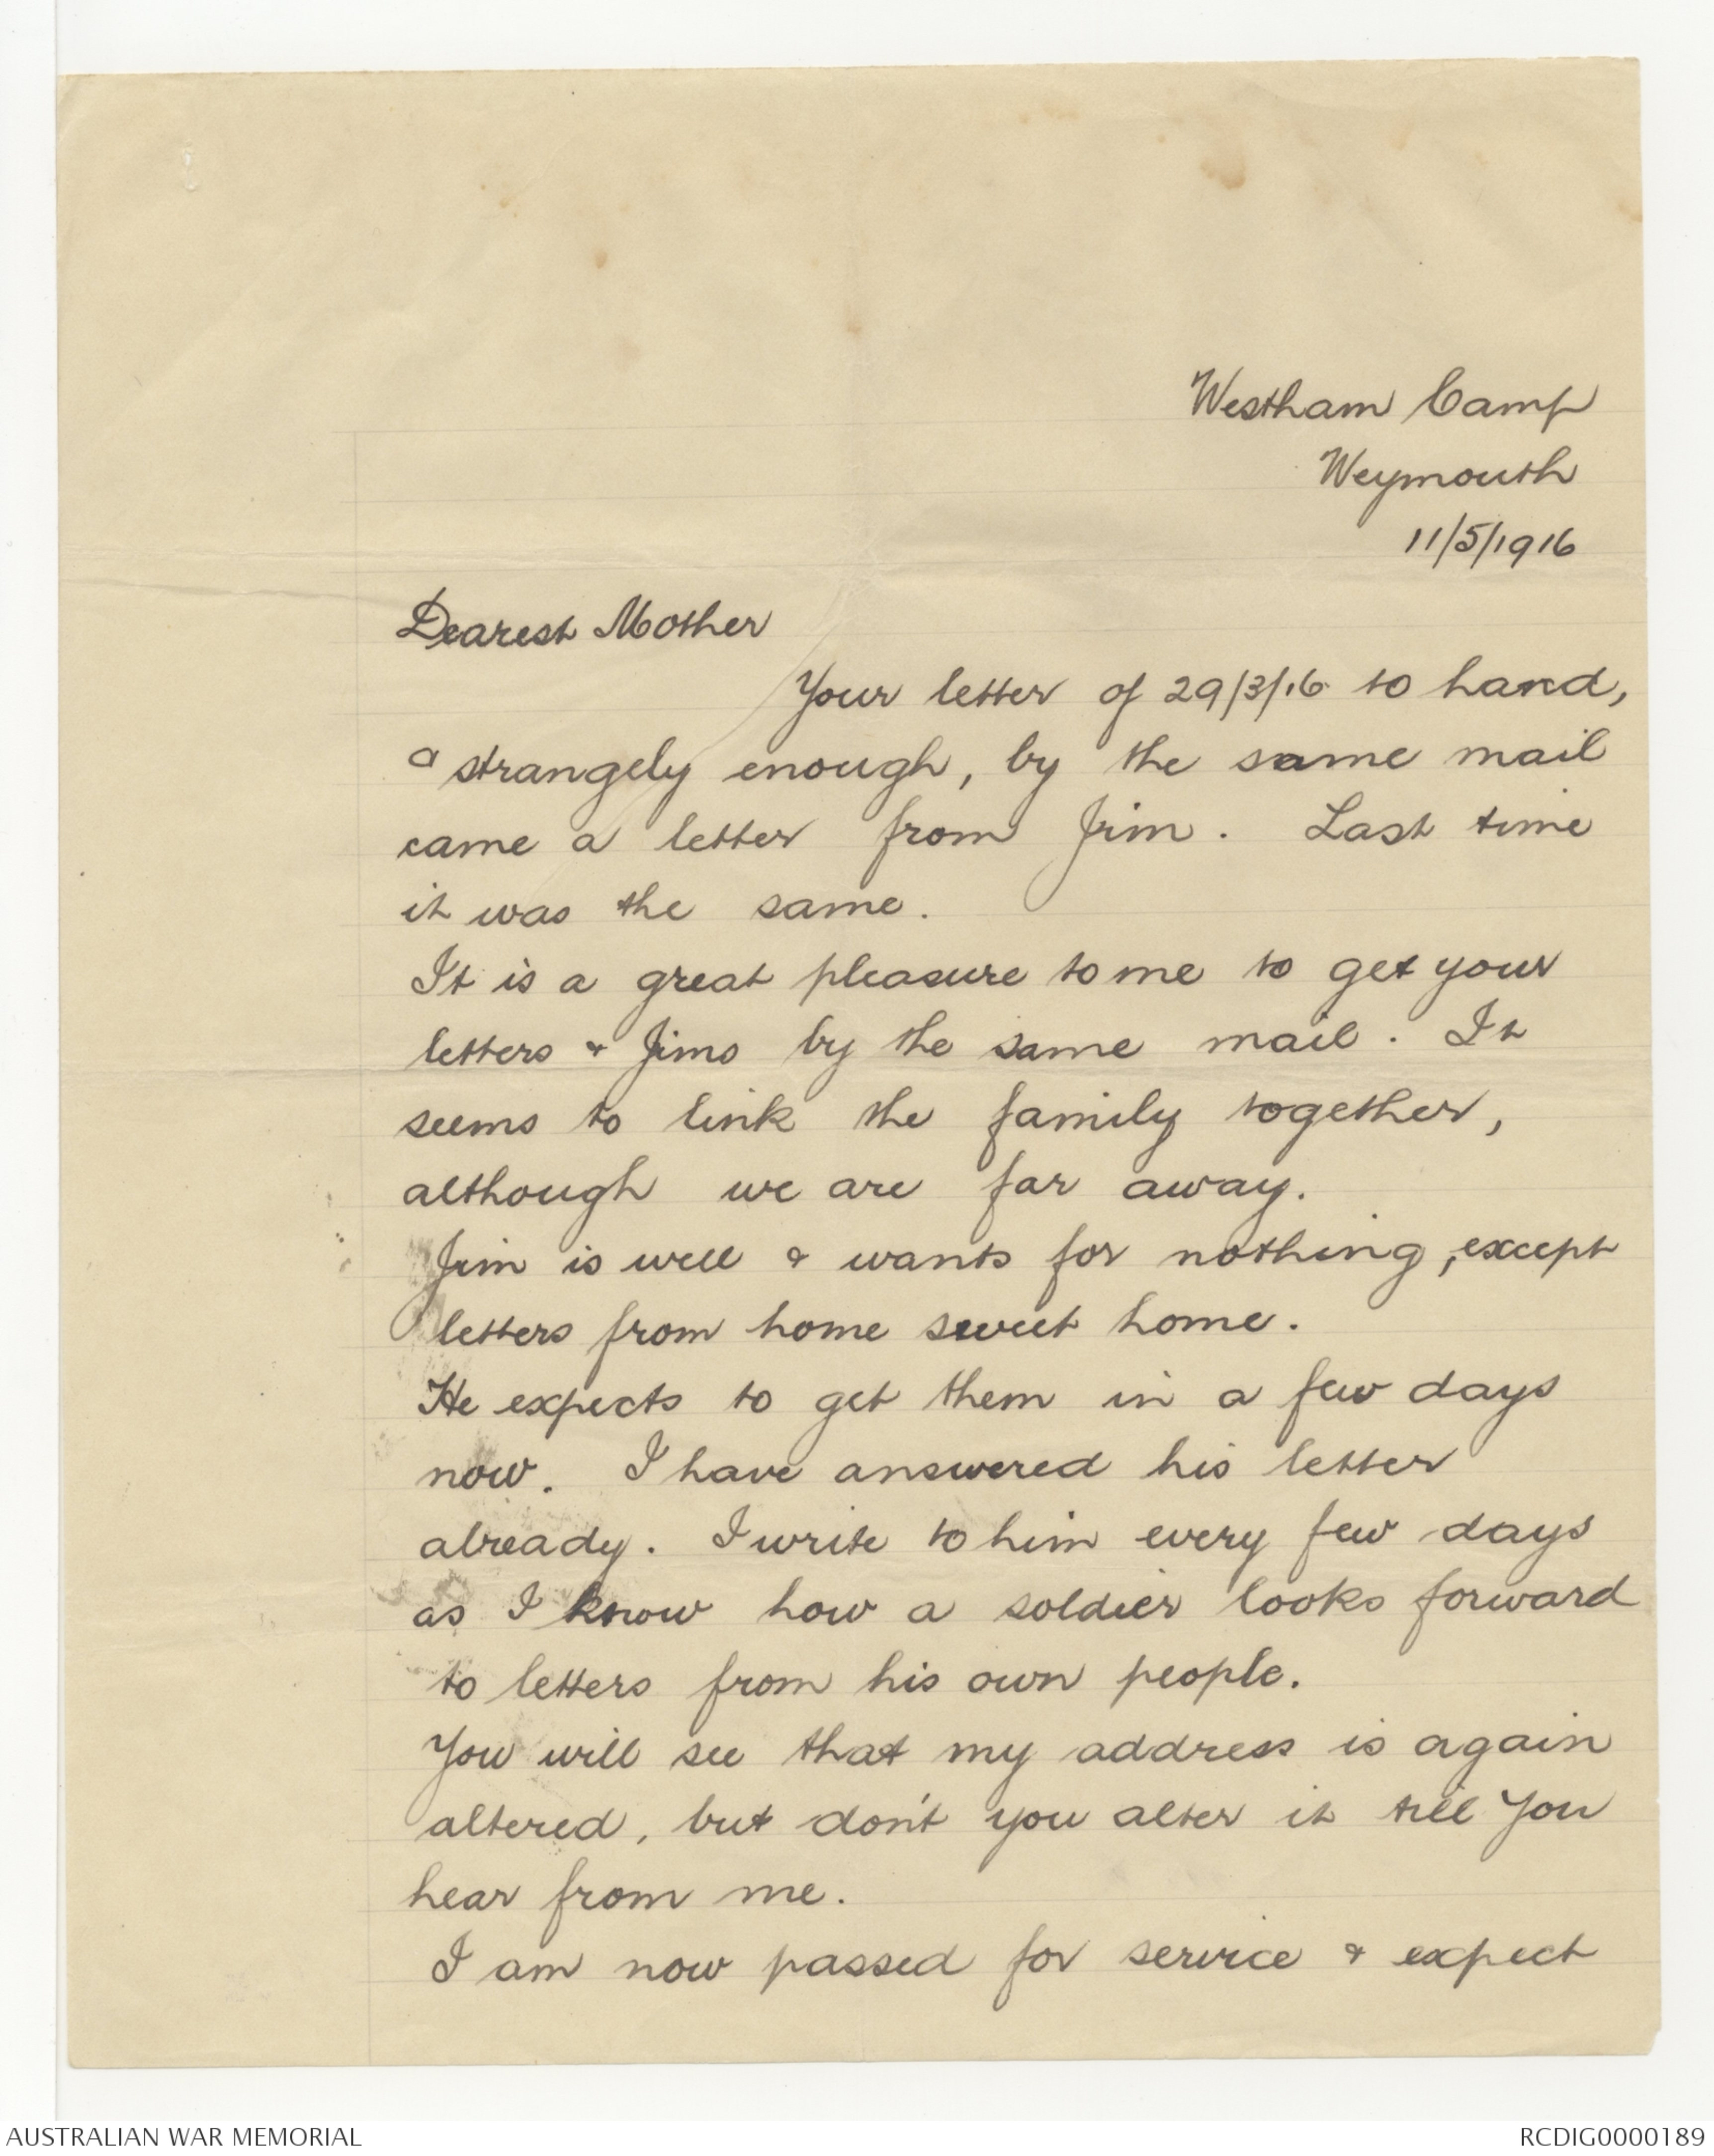 Westham Camp
Weymouth
11/5/1916
Dearest Mother
Your letter of 29/3/16 to hand,
& strangely enough, by the same mail
came a letter from Jim. Last time
it was the same.
It is a great pleasure to me to get your
letters & Jims by the same mail. It
seems to link the family together,
although we are far away.
Jim is well & wants for nothing, except
letters from home sweet home.
He expects to get them in a few days
now. I have answered his letter
already. I write to him every few days
as I know how a soldier looks forward
to letters from his own people.
You will see that my address is again
altered, but don't you alter it till you
hear from me.
I am now passed for service & expect
AUSTRALIAN WAR MEMORIAL
RCDIG0000189